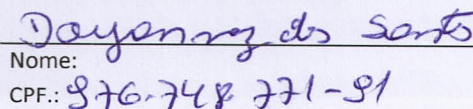 Dayanny dos Santos
Nome:
CPF.: 976.748.771-91